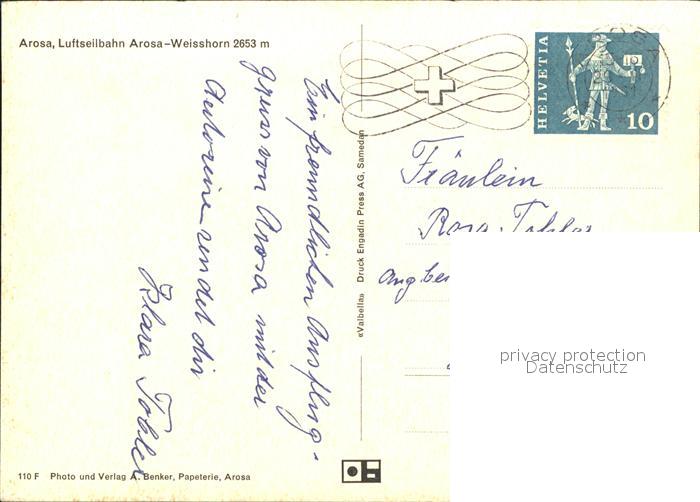 Arosa, Luftseilbahn Arosa–Weisshorn 2653 m
Ein freundlichen Ausflug-
gruss von Arosa mit der
sendet dir
Klara Tobler
«Valbella» Druck Engadin Press AG, Samedan
HELVETIA
10
Fräulein
Rosa Tobler
Ang bei
privacy protection
Datenschutz
110 F Photo und Verlag A. Benker, Papeterie, Arosa